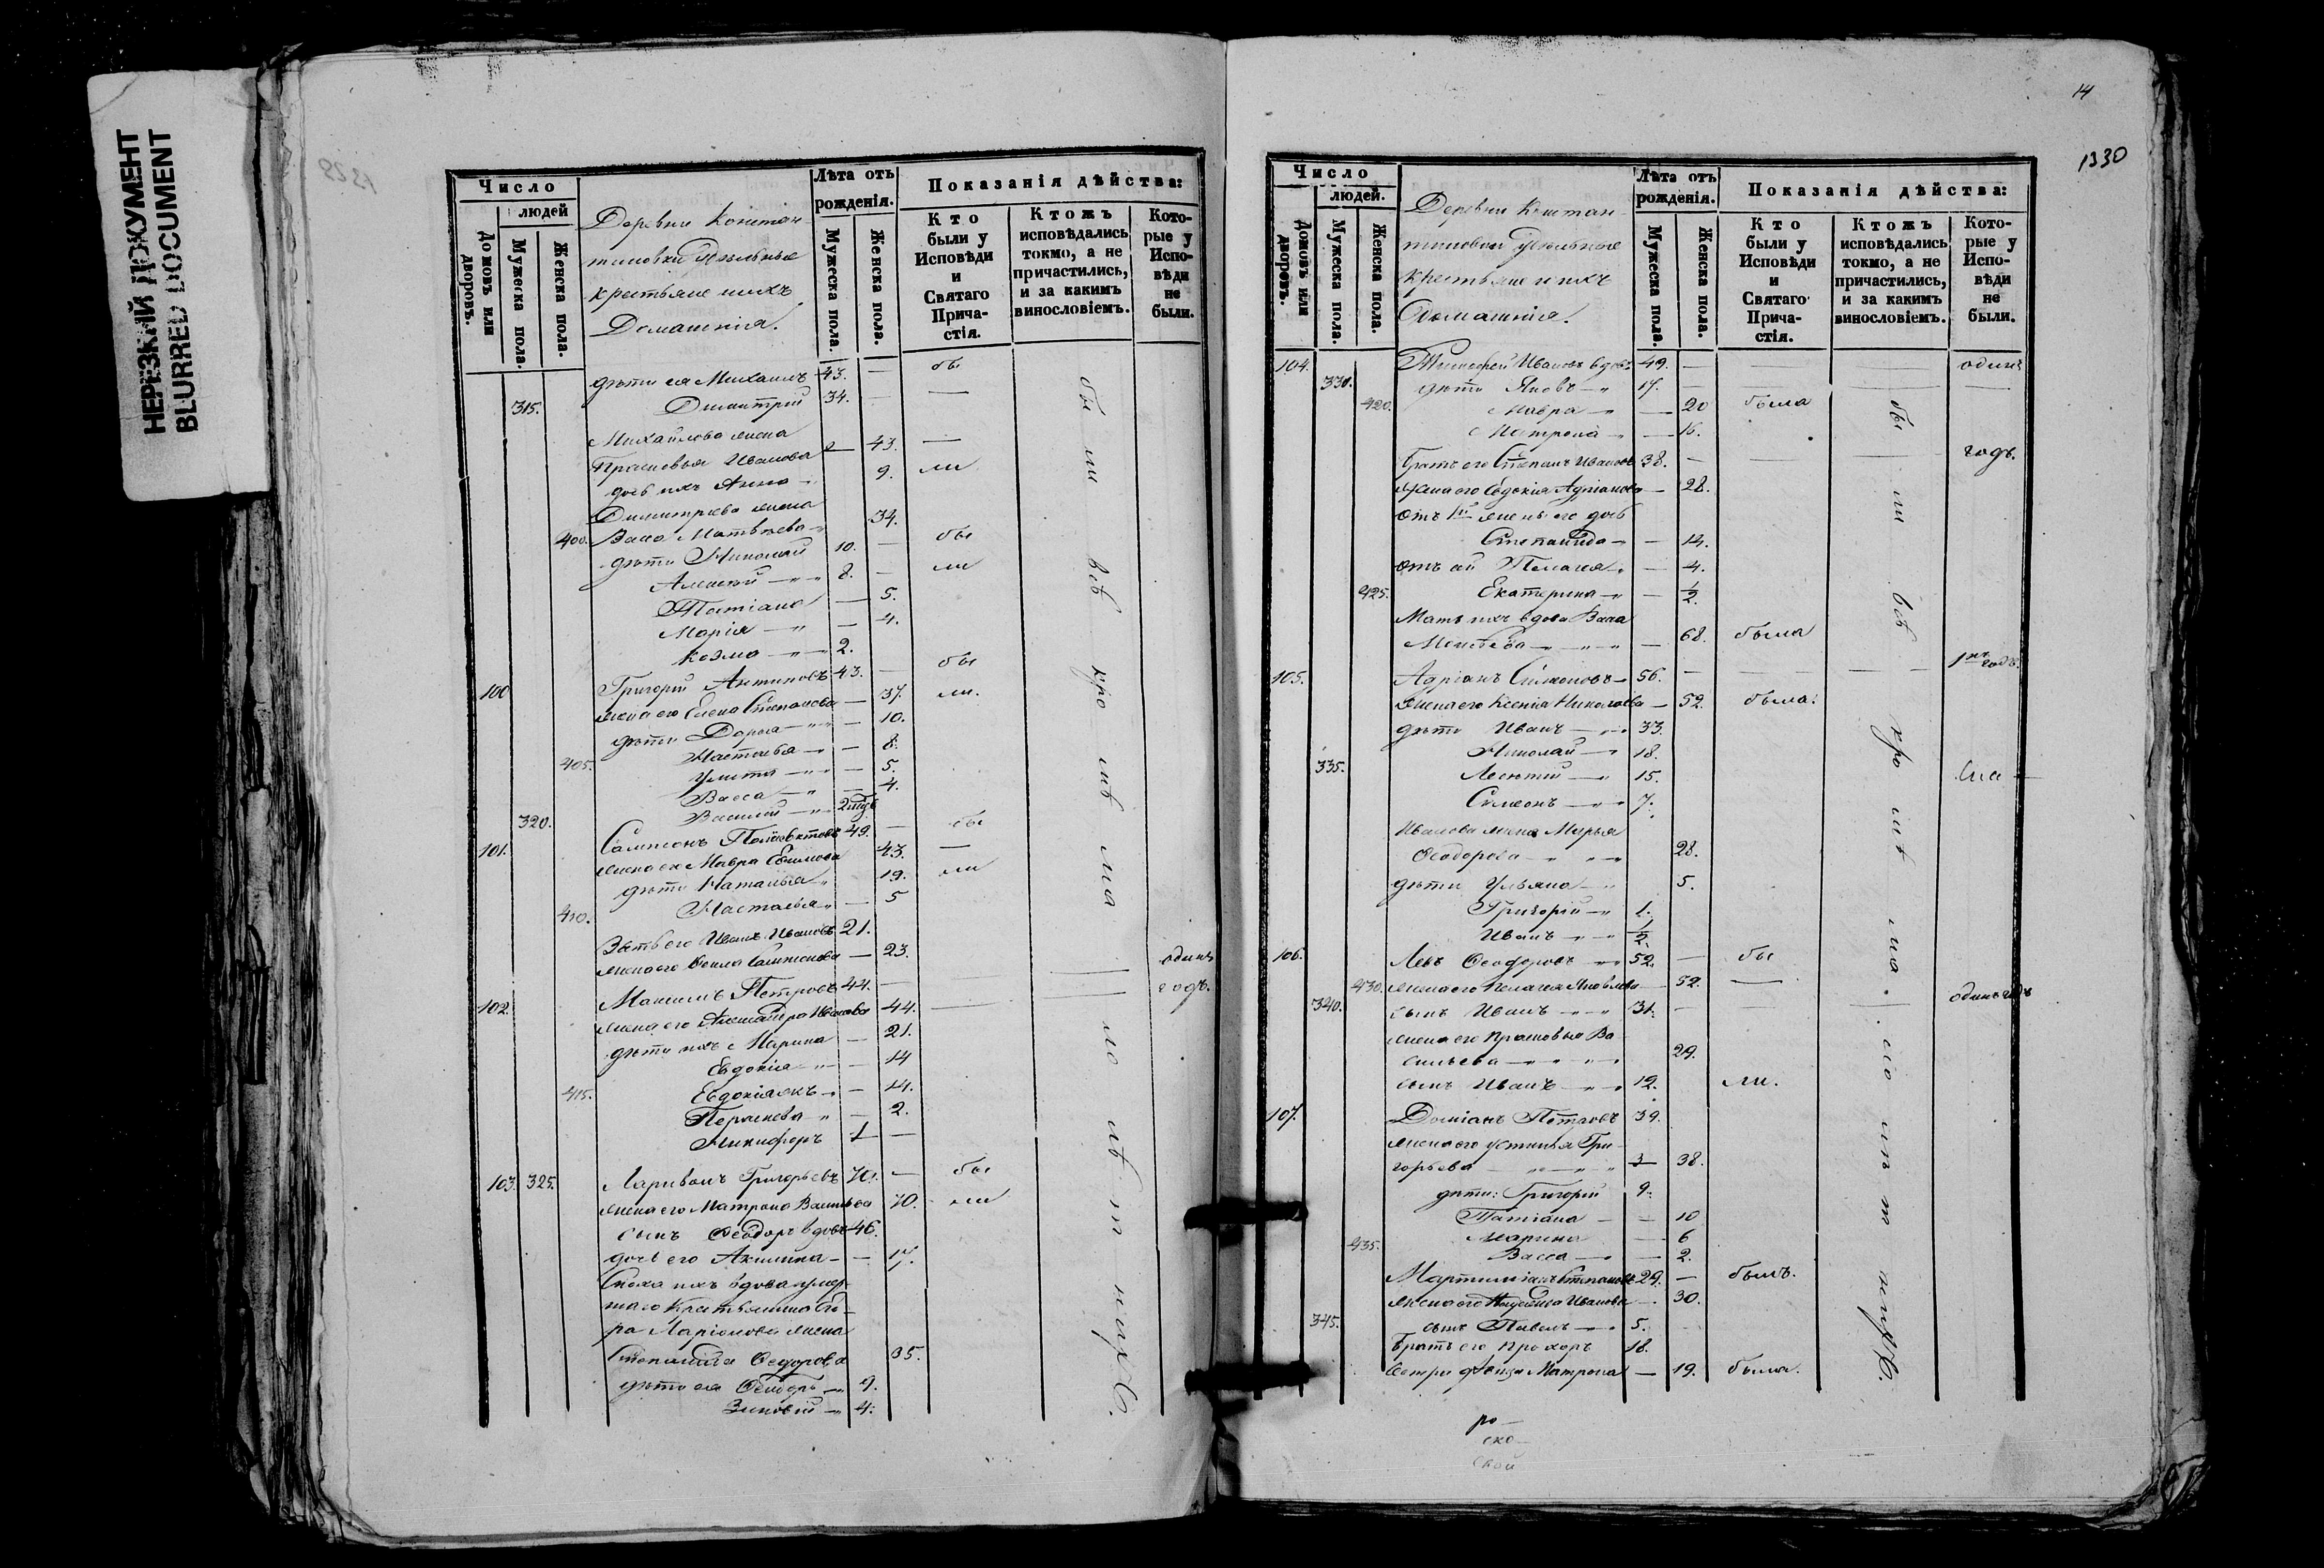 НЕРЕЗКИЙ ДОКУМЕНТ
BLURRED DOCUMENT
Число
людей
Домовъ или дворовъ.
Мужеска пола.
Женска пола.
Деревни Констан-
тиновки Удельные
крестьяне и ихъ
Домашнія.
Лѣта отъ рожденія.
Мужеска пола.
Женска пола.
Показанія дѣйства:
Кто были у Исповѣди и Святаго Прича-стія.
Ктожъ исповѣдались токмо, а не причастились, и за какимъ винословіемъ.
Кото-рые у Испо-вѣди не были.
дѣти ея Михаилъ 43. — бы
315. Димитрій 34. — —
Михайлова жена
Прасковья Иванова — 43. —
дочь ихъ Анна 9. ли
Димитріева жена
400. Васа Матвѣева 34.
дѣти Николай 10. — бы
Алексѣй 8. — ли
Татіана — 5.
Марія — 4.
Козма 2.
100 Григорій Антиповъ 43. — бы
жена его Елена Степанова — 37. ли.
дѣти Дарья — 10.
405. Настасья — 8.
Улита — 5.
Васса — 4.
320. Василій
101. Сампсонъ Поліевктовъ 49. — бы
жена его Мавра Ефимова 43. —
дѣти Наталья 19. ли
410. Настасья — 5
Зять его Иванъ Ивановъ 21.
жена его Сампсонова — 23.
102. Максимъ Петровъ 44. — одинъ годъ.
жена его Александра Иванова 44. —
дѣти ихъ Марина — 21.
Евдокія — 14
415. Евдокія — 14.
— 2.
Никифоръ 1 —
103. 325. Ларивонъ Григорьевъ 70. — бы
жена его Матрона Васильева 70. ли
сынъ Ѳеодоръ вдовъ 46.
дочь его Акилина — 17.
Сноха ихъ вдова умер-
шаго Крестьянина
ра Ларіонова жена
Степанида Ѳедорова 35.
дѣти ея Ѳеодоръ 9.
Зиновій 4.
бы ли всѣ кро мѣ ма ло лѣт нихъ.
14
1330
Число
людей.
Домовъ или дворовъ.
Мужеска пола.
Женска пола.
Деревни Констан-
тиновки Удѣльные
крестьяне и ихъ
Домашнія.
Лѣта отъ рожденія.
Мужеска пола.
Женска пола.
Показанія дѣйства:
Кто были у Исповѣди и Святаго Прича-стія.
Ктожъ исповѣдались токмо, а не причастились, и за какимъ винословіемъ.
Кото-рые у Испо-вѣди не были.
104. Тимофей Ивановъ вдовъ 49. — — — одинъ
330. дѣти Яковъ 17. — — — —
420. Мавра — 20 была
Матрона — 16.
Братъ его Степанъ Ивановъ 38. — — — годъ.
жена его Евдокія Адріанова — 28.
отъ 1й жены его дочь
Степанида — 14.
Пелагея — 4.
425. Екатерина — 1/2.
Мать ихъ вдова Васа
— 68. была
105. Адріанъ Симеоновъ 56. — — — 1нъ годъ.
жена его Ксенія Николаева — 52. была.
дѣти Иванъ 33.
Николай 18.
335. Леонтій 15.
Симеонъ 7.
Иванова жена Марья
Ѳеодорова 28.
дѣти Ульяна 5.
Григорій 1.
Иванъ 1/2.
106. Левъ Ѳеодоровъ 52. — бы
430. жена его Пелагея Яковлева 52. —
340. сынъ Иванъ 31. — — — одинъ годъ
жена его Прасковья Ва
сильева 29.
сынъ Иванъ 12. ли.
107. Доміанъ Петровъ 39.
жена его Устинья Гри-
горьева 38.
дѣти: Григорій 9.
Татіана — 10
435. Марина — 6
Васса — 2.
Мартиміанъ Степановъ 29. — былъ.
жена его Иванова — 30.
345. сынъ Павелъ 5.
Братъ его Прохоръ 18.
Сестра дѣвица Матрона — 19. была.
бы ли всѣ кро мѣ ма ло лѣт нихъ.
ро—
ско—
ской